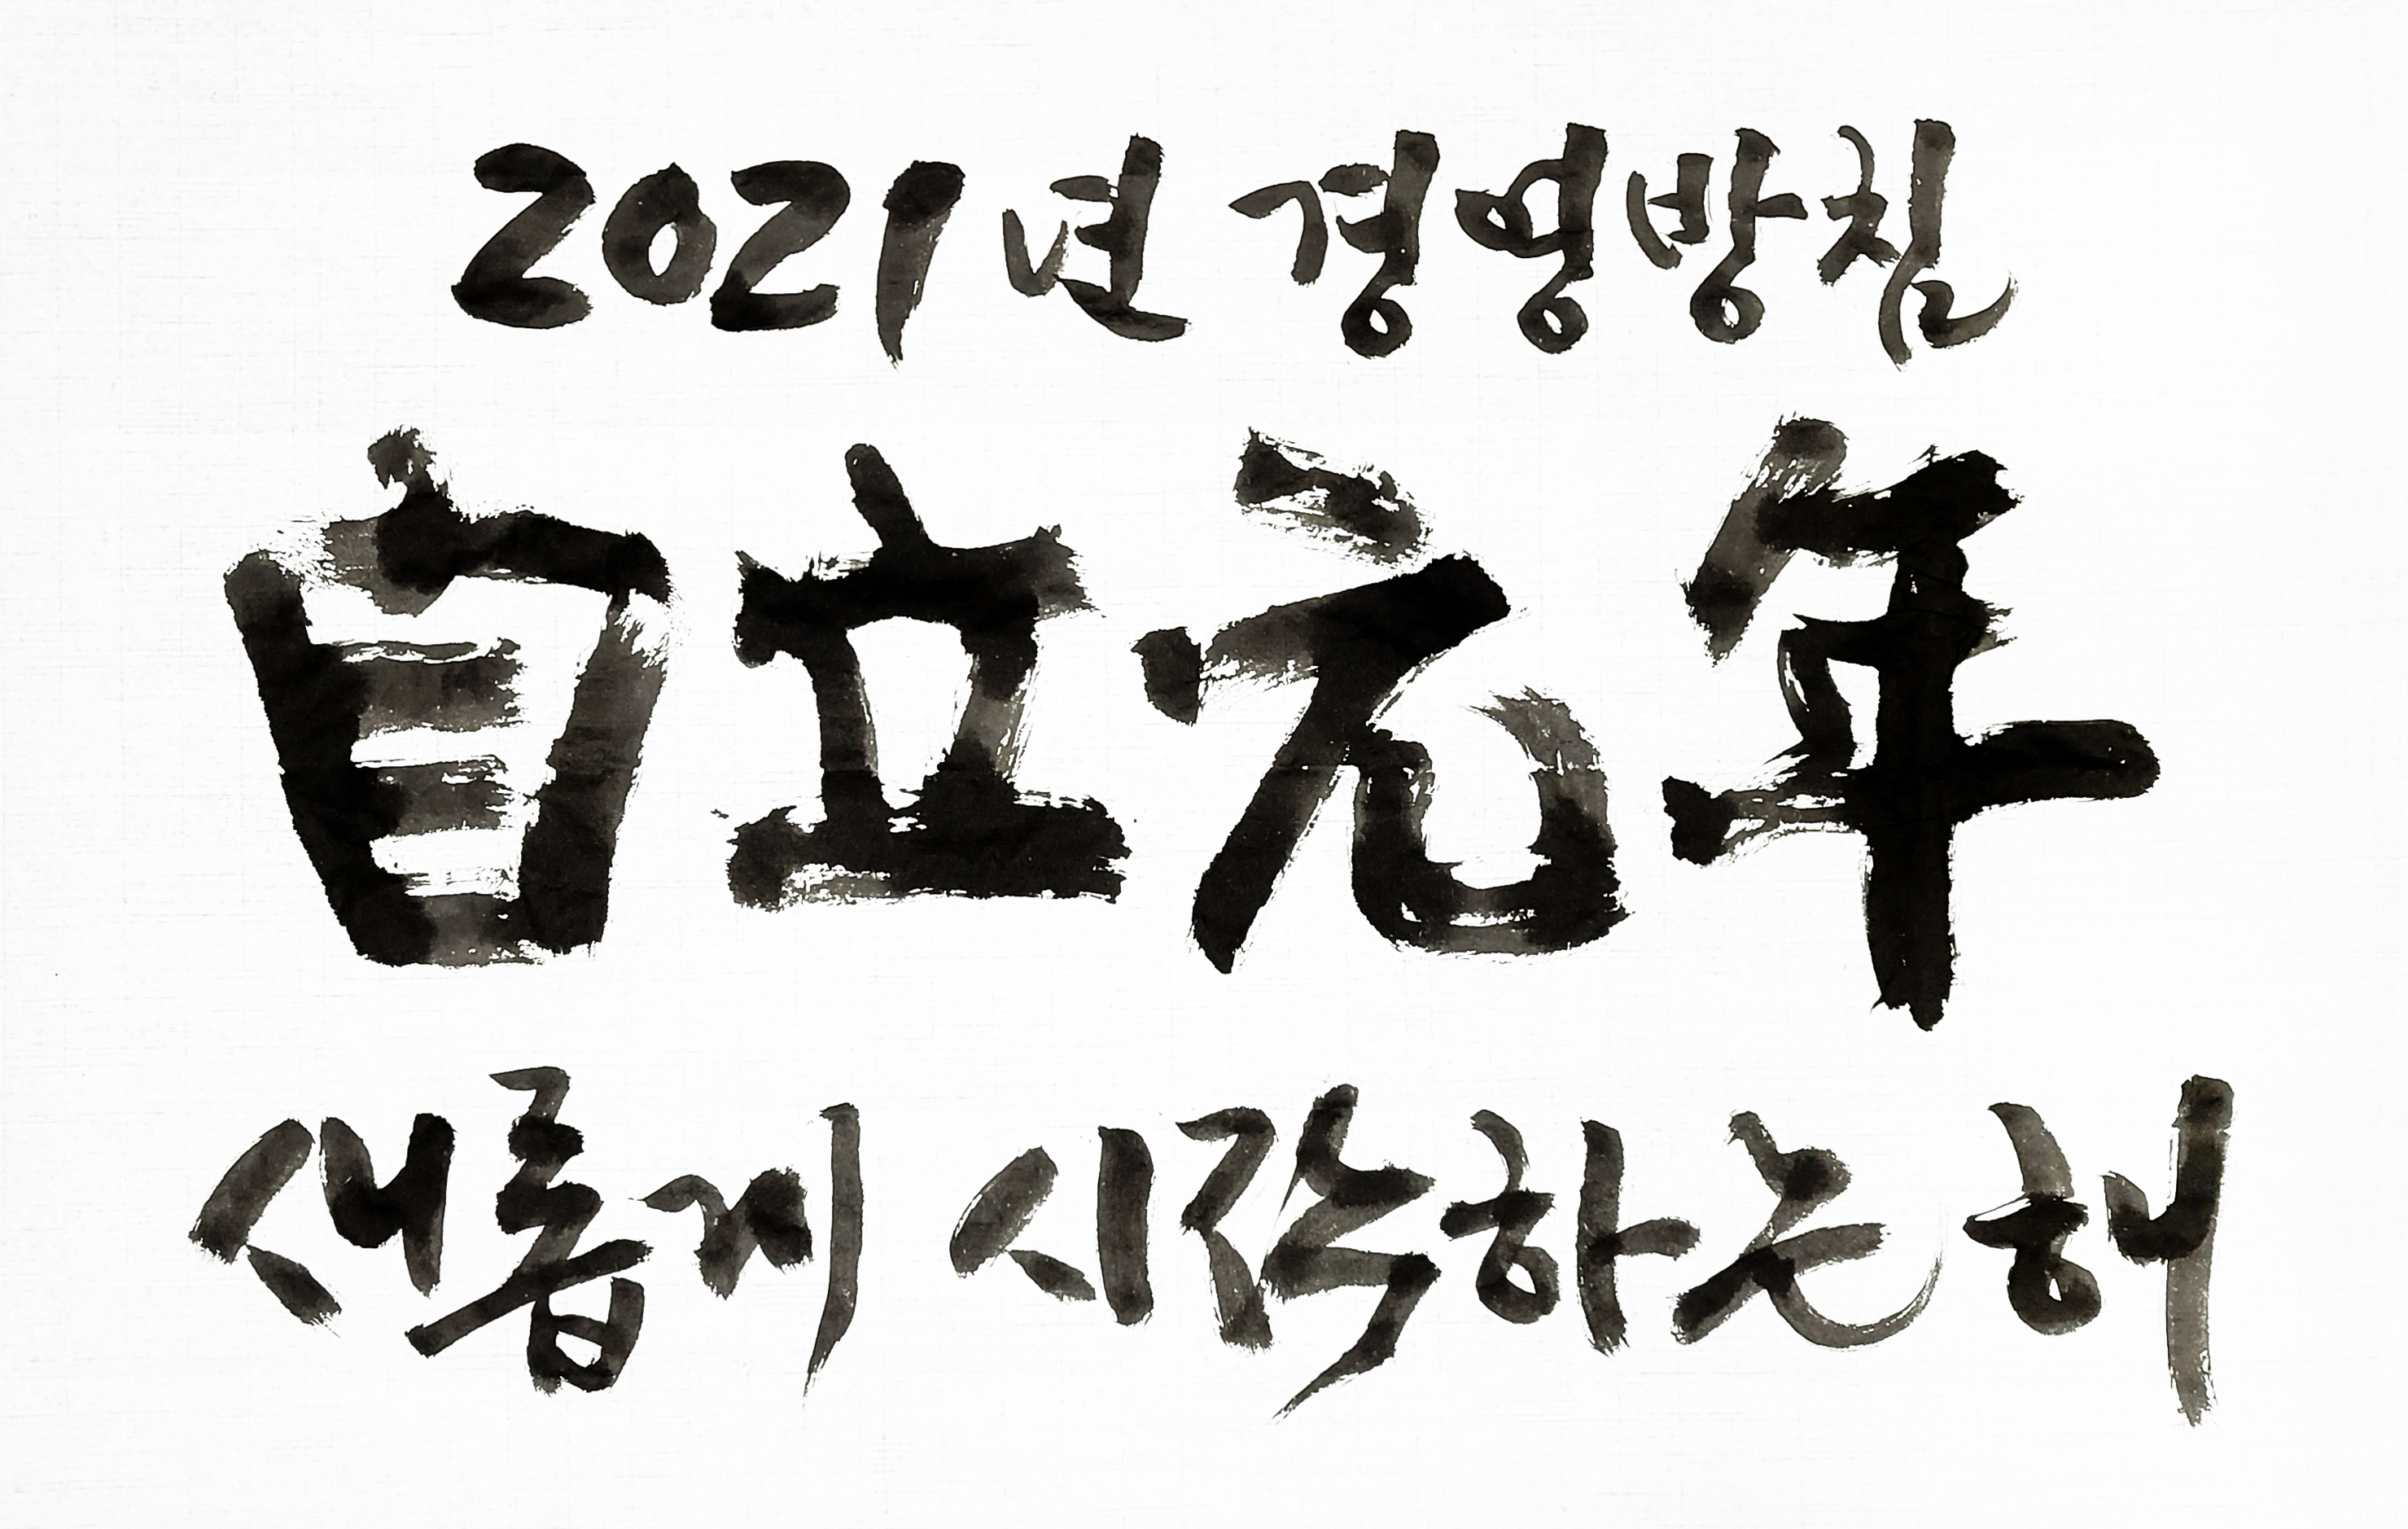 2021년 경영방침
自立元年
새롭게 시작하는 해